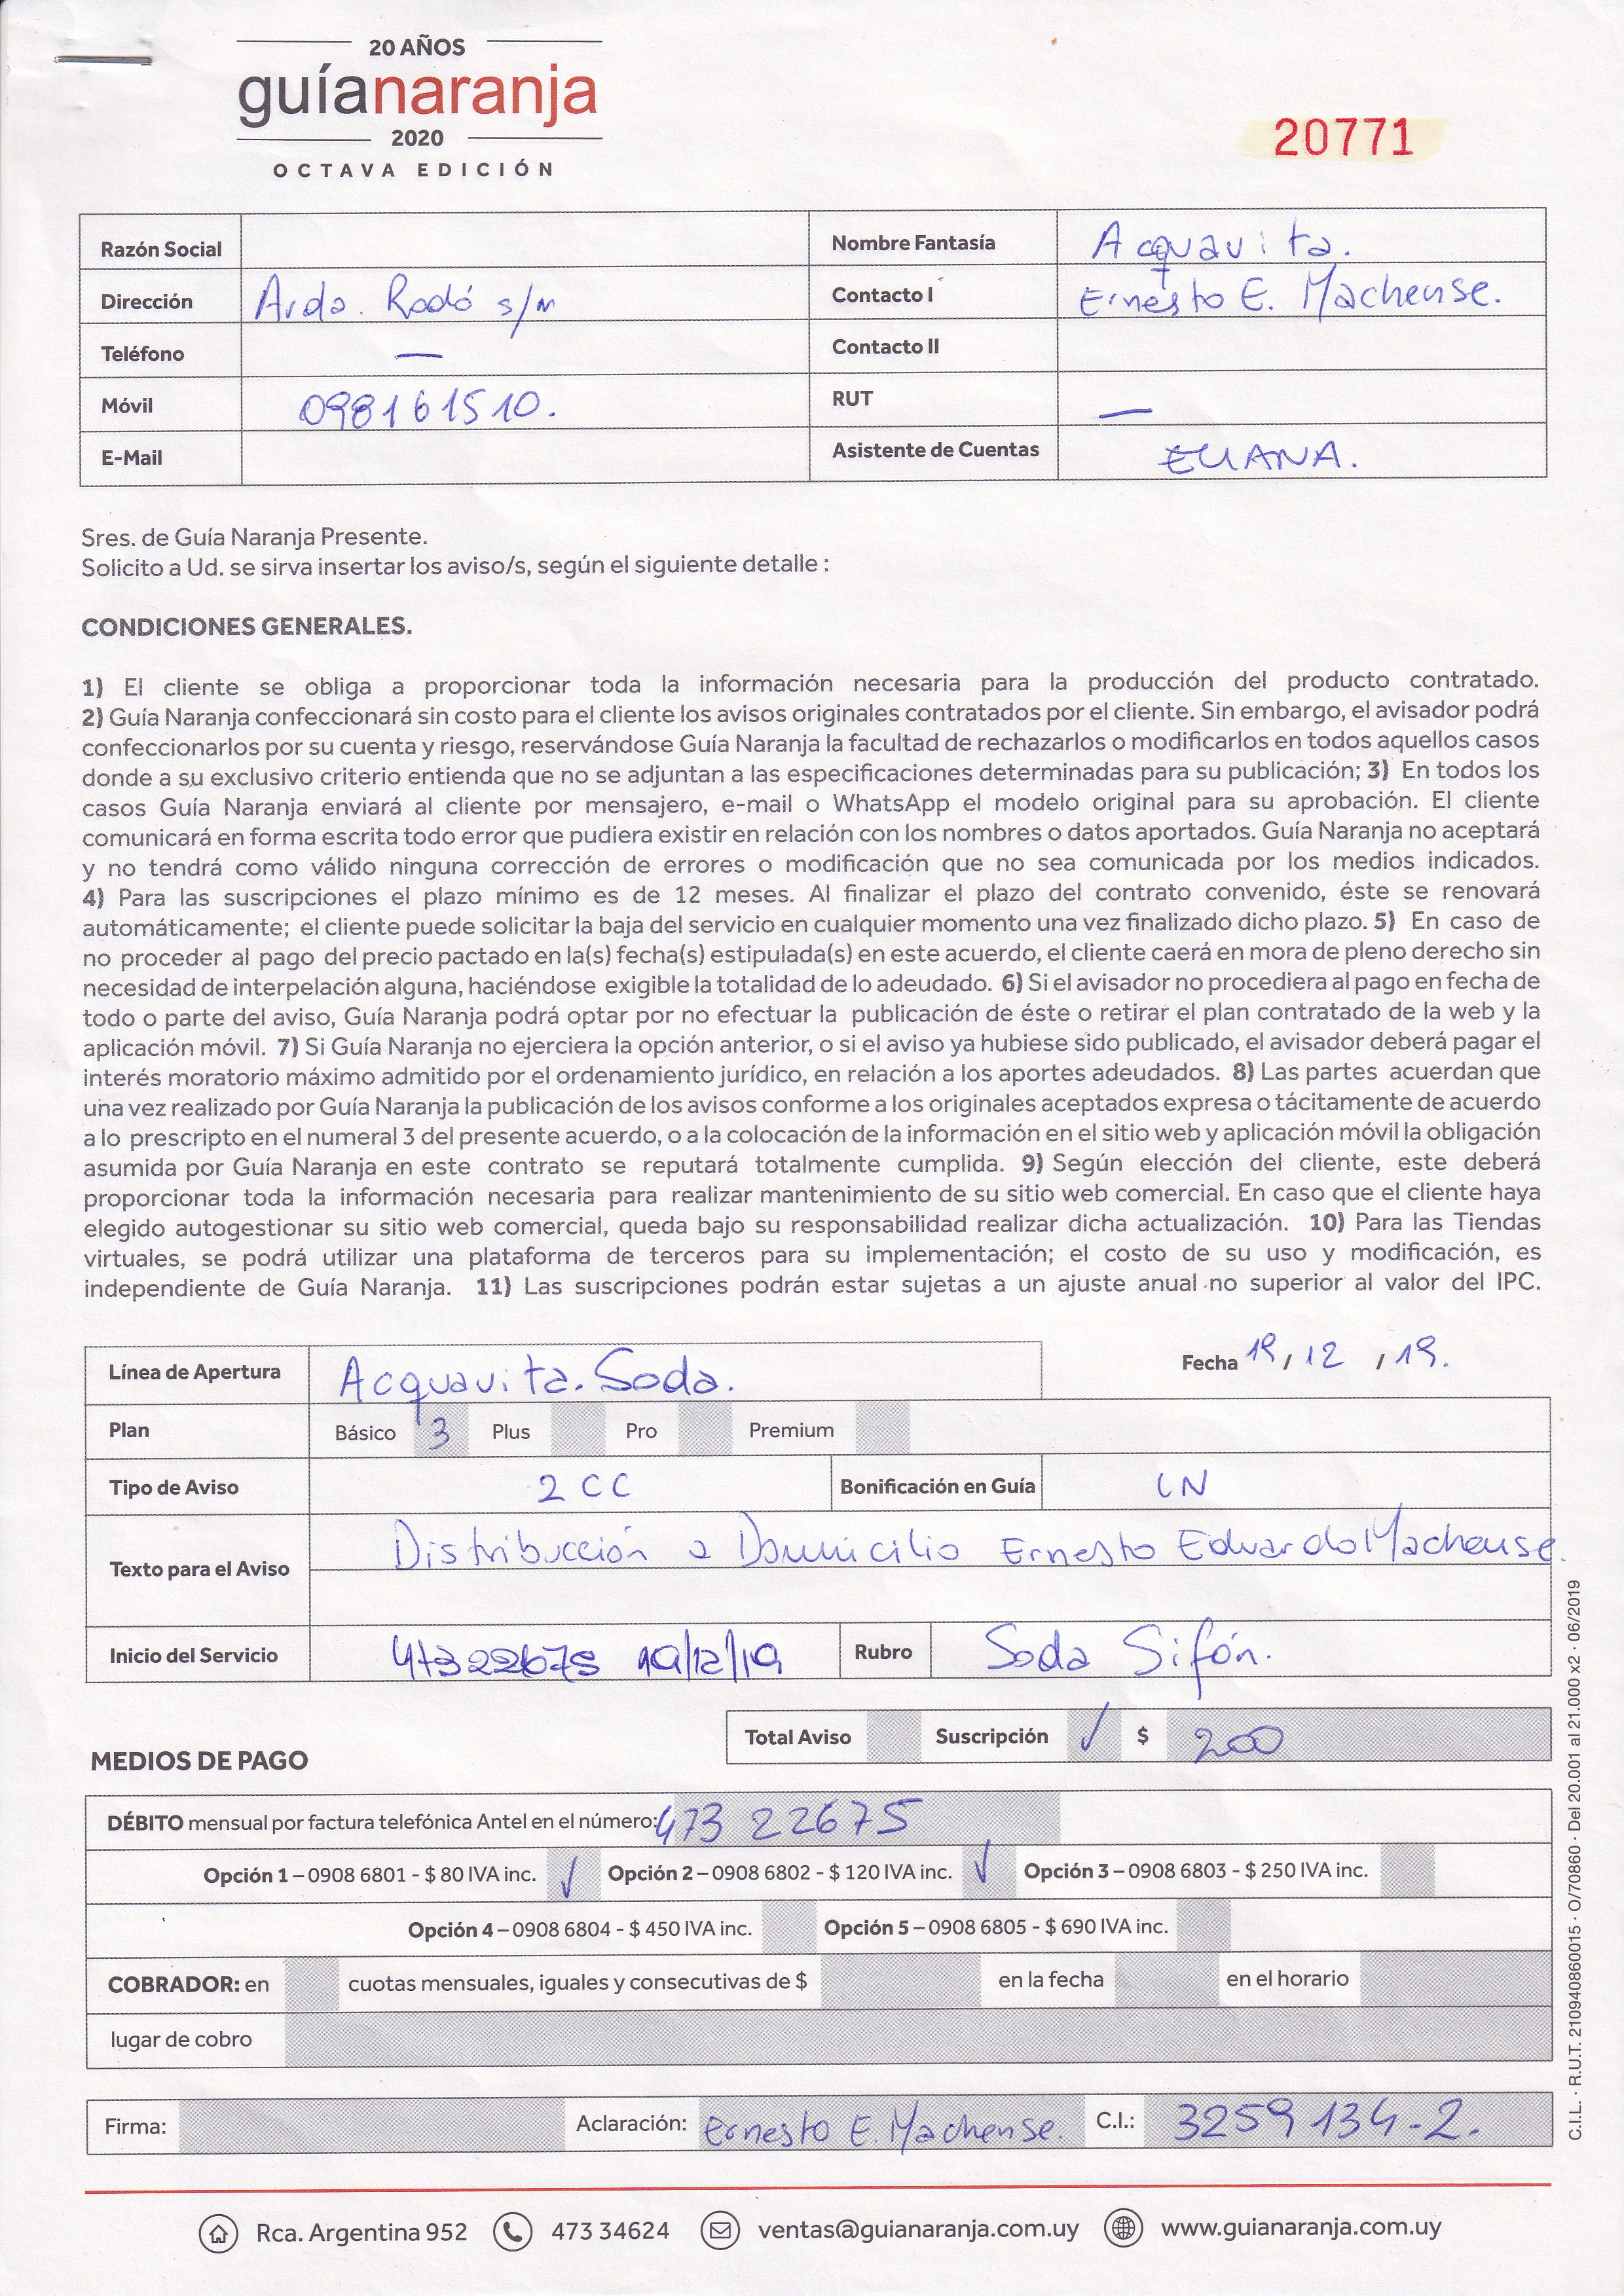 20 AÑOS
guíanaranja
2020
OCTAVA EDICIÓN
20771
Razón Social
Nombre Fantasía Acquavita.
Dirección Avda. Rodó s/n
Contacto I Ernesto E. Machense.
Teléfono —
Contacto II
Móvil 098161510.
RUT —
E-Mail
Asistente de Cuentas ELIANA.
Sres. de Guía Naranja Presente.
Solicito a Ud. se sirva insertar los aviso/s, según el siguiente detalle :
CONDICIONES GENERALES.
1) El cliente se obliga a proporcionar toda la información necesaria para la producción del producto contratado.
2) Guía Naranja confeccionará sin costo para el cliente los avisos originales contratados por el cliente. Sin embargo, el avisador podrá
confeccionarlos por su cuenta y riesgo, reservándose Guía Naranja la facultad de rechazarlos o modificarlos en todos aquellos casos
donde a su exclusivo criterio entienda que no se adjuntan a las especificaciones determinadas para su publicación; 3) En todos los
casos Guía Naranja enviará al cliente por mensajero, e-mail o WhatsApp el modelo original para su aprobación. El cliente
comunicará en forma escrita todo error que pudiera existir en relación con los nombres o datos aportados. Guía Naranja no aceptará
y no tendrá como válido ninguna corrección de errores o modificación que no sea comunicada por los medios indicados.
4) Para las suscripciones el plazo mínimo es de 12 meses. Al finalizar el plazo del contrato convenido, éste se renovará
automáticamente; el cliente puede solicitar la baja del servicio en cualquier momento una vez finalizado dicho plazo. 5) En caso de
no proceder al pago del precio pactado en la(s) fecha(s) estipulada(s) en este acuerdo, el cliente caerá en mora de pleno derecho sin
necesidad de interpelación alguna, haciéndose exigible la totalidad de lo adeudado. 6) Si el avisador no procediera al pago en fecha de
todo o parte del aviso, Guía Naranja podrá optar por no efectuar la publicación de éste o retirar el plan contratado de la web y la
aplicación móvil. 7) Si Guía Naranja no ejerciera la opción anterior, o si el aviso ya hubiese sido publicado, el avisador deberá pagar el
interés moratorio máximo admitido por el ordenamiento jurídico, en relación a los aportes adeudados. 8) Las partes acuerdan que
una vez realizado por Guía Naranja la publicación de los avisos conforme a los originales aceptados expresa o tácitamente de acuerdo
a lo prescripto en el numeral 3 del presente acuerdo, o a la colocación de la información en el sitio web y aplicación móvil la obligación
asumida por Guía Naranja en este contrato se reputará totalmente cumplida. 9) Según elección del cliente, este deberá
proporcionar toda la información necesaria para realizar mantenimiento de su sitio web comercial. En caso que el cliente haya
elegido autogestionar su sitio web comercial, queda bajo su responsabilidad realizar dicha actualización. 10) Para las Tiendas
virtuales, se podrá utilizar una plataforma de terceros para su implementación; el costo de su uso y modificación, es
independiente de Guía Naranja. 11) Las suscripciones podrán estar sujetas a un ajuste anual no superior al valor del IPC.
Línea de Apertura Acquavita. Soda.
Fecha 19 / 12 / 19.
Plan Básico 3 Plus Pro Premium
Tipo de Aviso 2 CC Bonificación en Guía LN
Texto para el Aviso Distribucción a Domicilio Ernesto Eduardo Machense.
Inicio del Servicio 47322675 19/12/19 Rubro Soda Sifón.
Total Aviso Suscripción ✓ $ 200
MEDIOS DE PAGO
DÉBITO mensual por factura telefónica Antel en el número: 473 22675
Opción 1 – 0908 6801 - $ 80 IVA inc. ✓ Opción 2 – 0908 6802 - $ 120 IVA inc. ✓ Opción 3 – 0908 6803 - $ 250 IVA inc.
Opción 4 – 0908 6804 - $ 450 IVA inc. Opción 5 – 0908 6805 - $ 690 IVA inc.
COBRADOR: en cuotas mensuales, iguales y consecutivas de $ en la fecha en el horario
lugar de cobro
Firma: Aclaración: Ernesto E. Machense. C.I.: 3259134-2.
C.I.L. · R.U.T. 210940860015 · O/70860 · Del 20.001 al 21.000 x2 · 06/2019
Rca. Argentina 952 473 34624 ventas@guianaranja.com.uy www.guianaranja.com.uy